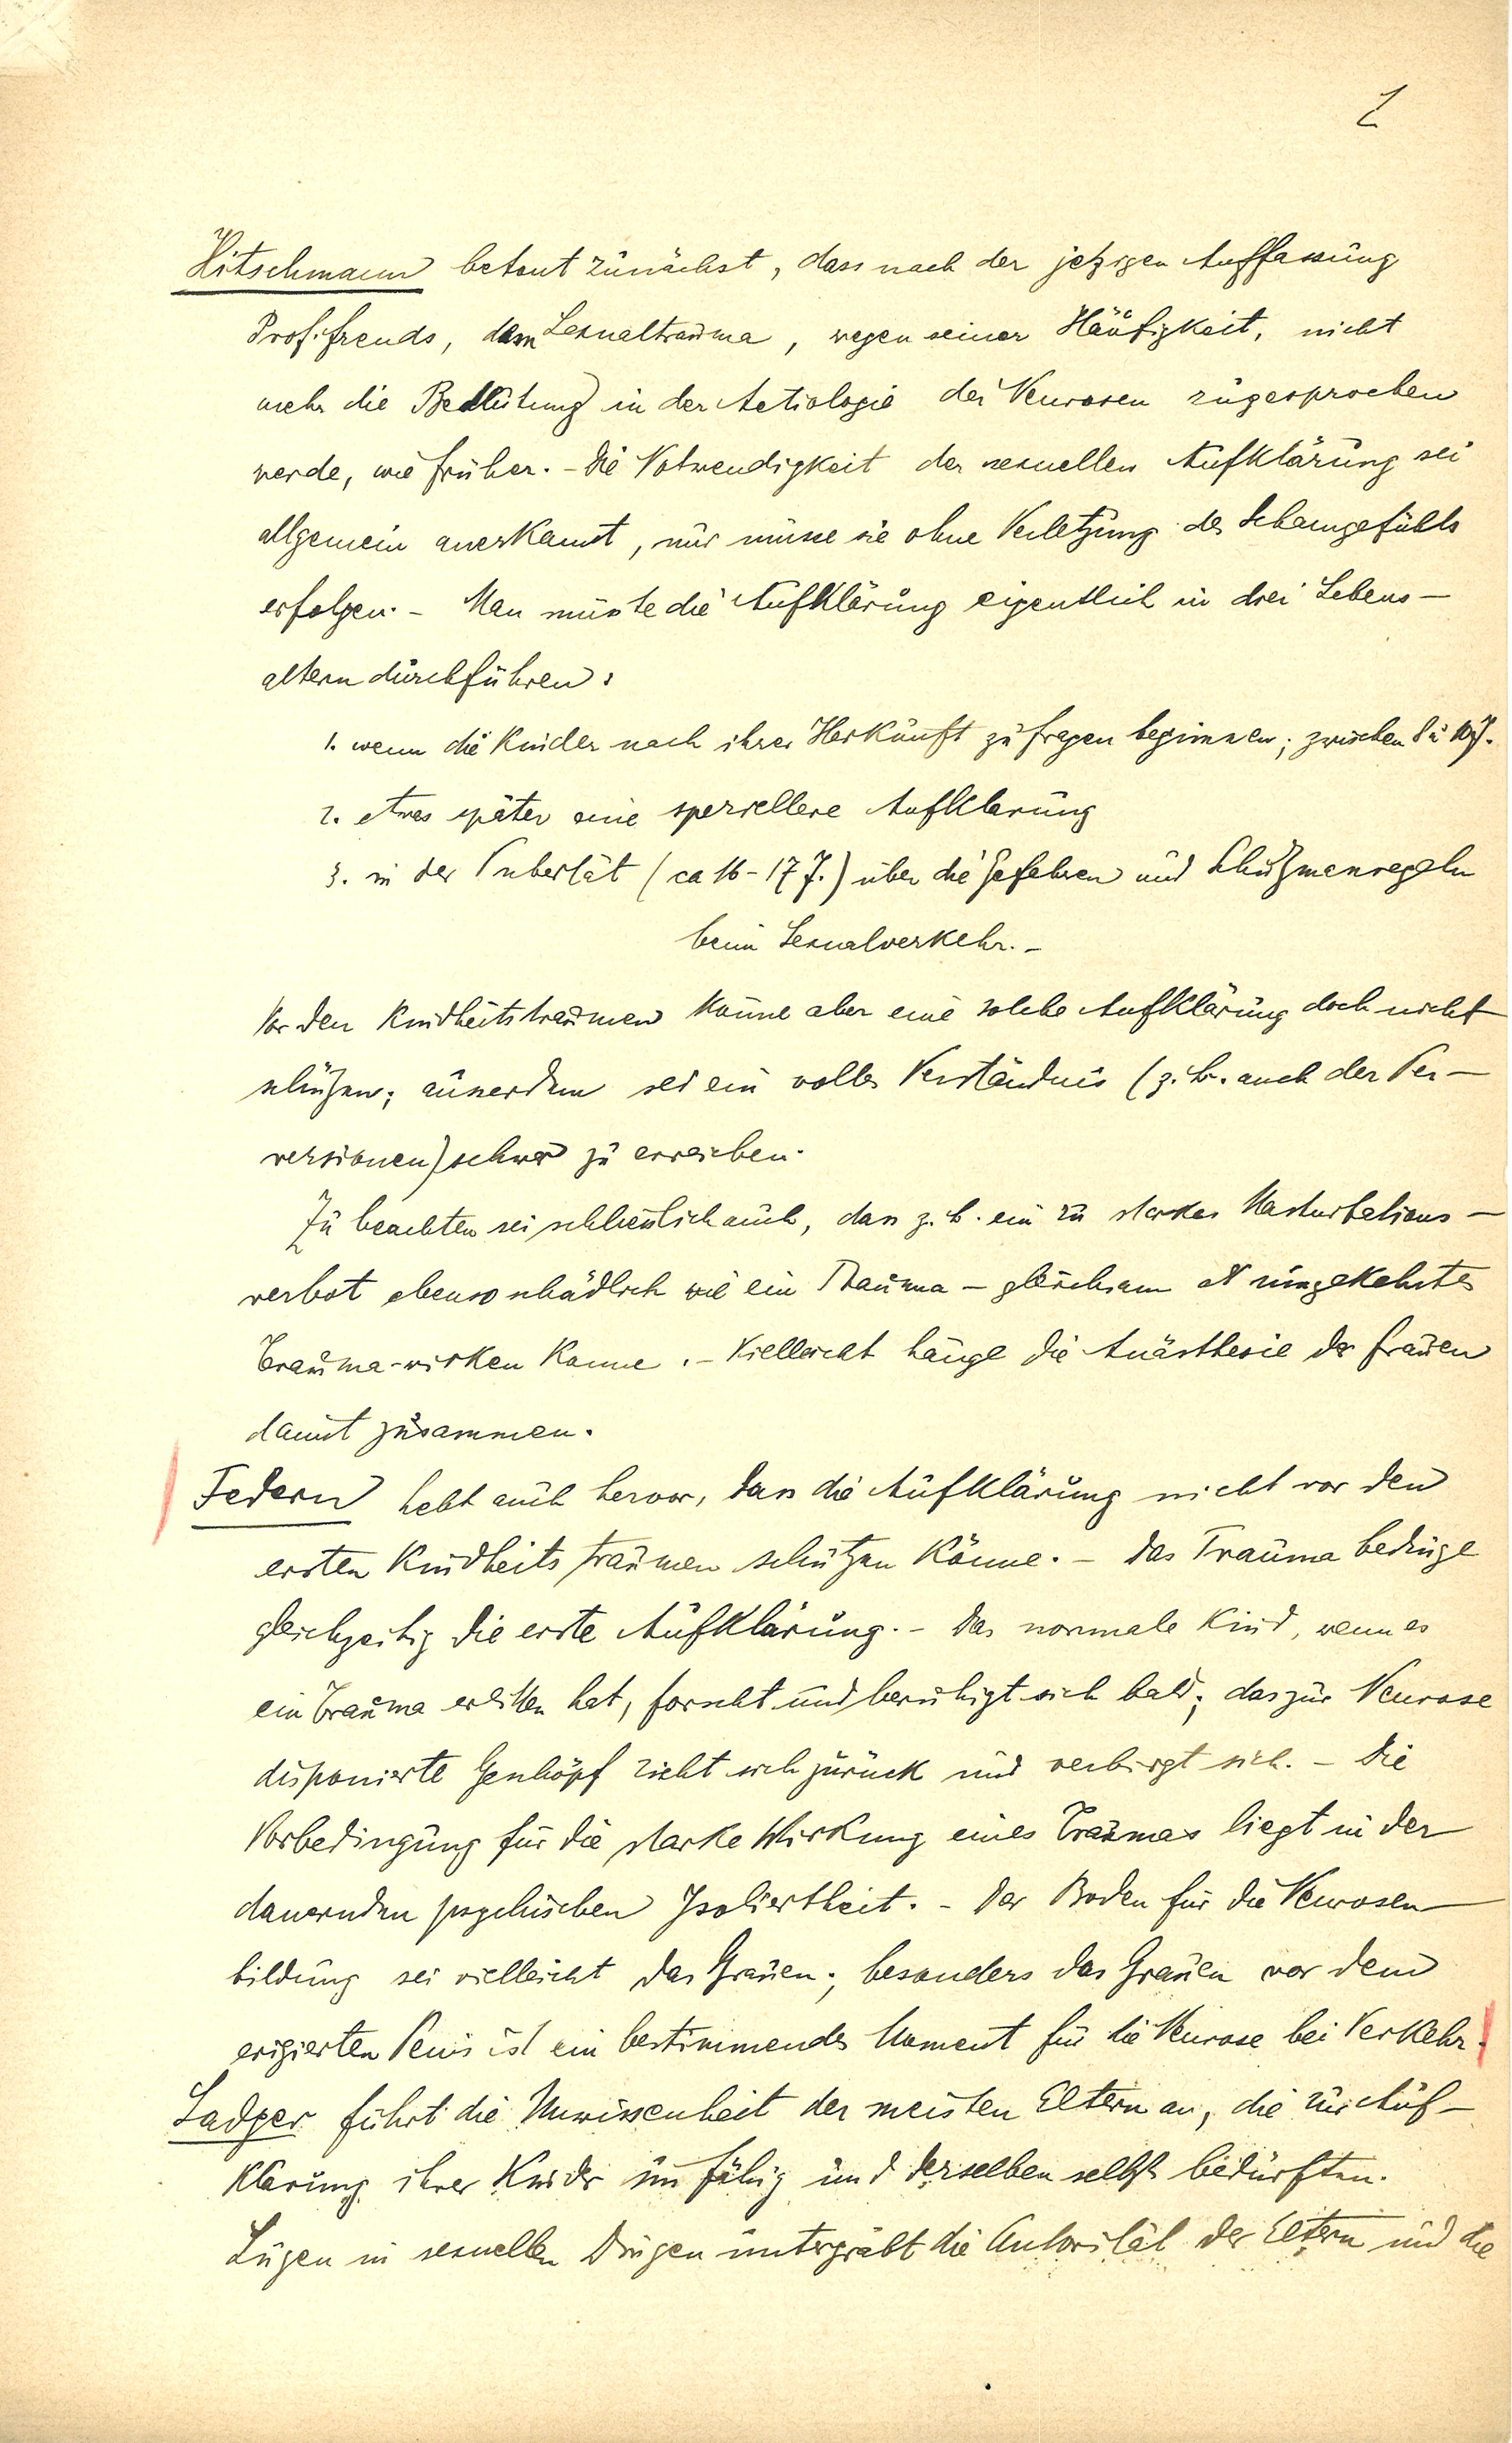 2
Hitschmann betont zunächst, dass nach der jetzigen Auffassung
Prof. Freuds, dem Sexualtrauma, wegen seiner Häufigkeit, nicht
mehr die Bedeutung in der Aetiologie der Neurosen zugesprochen
werde, wie früher. – Die Notwendigkeit der sexuellen Aufklärung sei
allgemein anerkannt, nur müsse sie ohne Verletzung des Schamgefühls
erfolgen. – Man müsste die Aufklärung eigentlich in drei Lebens-
altern durchführen:
1. wenn die Kinder nach ihrer Herkunft zu fragen beginnen; zwischen 8 u 10 J.
2. etwas später eine speziellere Aufklärung
3. in der Pubertät (ca 16–17 J.) über die Gefahren und Schutzmassregeln
beim Sexualverkehr. –
Vor den Kindheitstraumen könne aber eine solche Aufklärung doch nicht
schützen; ausserdem sei ein volles Verständnis (z. B. auch der Per-
versionen) schwer zu erreichen.
Zu beachten sei schliesslich auch, dass z. B. ein zu starkes Masturbations-
verbot ebenso schädlich wie ein Trauma – gleichsam als umgekehrtes
Trauma – wirken könne. – Vielleicht hänge die Anästhesie der Frauen
damit zusammen.
Federn hebt auch hervor, dass die Aufklärung nicht vor den
ersten Kindheitstraumen schützen könne. – Das Trauma bedinge
gleichzeitig die erste Aufklärung. – Das normale Kind, wenn es
ein Trauma erlitten hat, forscht und beruhigt sich bald; das zur Neurose
disponierte Geschöpf zieht sich zurück und verbirgt sich. – Die
Vorbedingung für die starke Wirkung eines Traumas liegt in der
dauernden psychischen Isoliertheit. – Der Boden für die Neurosen-
bildung sei vielleicht das Grauen; besonders das Grauen vor dem
erigierten Penis ist ein bestimmendes Moment für die Neurose bei Verkehr.
Sadger führt die Unwissenheit der meisten Eltern an, die zur Auf-
klärung ihrer Kinder unfähig und derselben selbst bedürften.
Lügen in sexuellen Dingen untergräbt die Autorität der Eltern und die